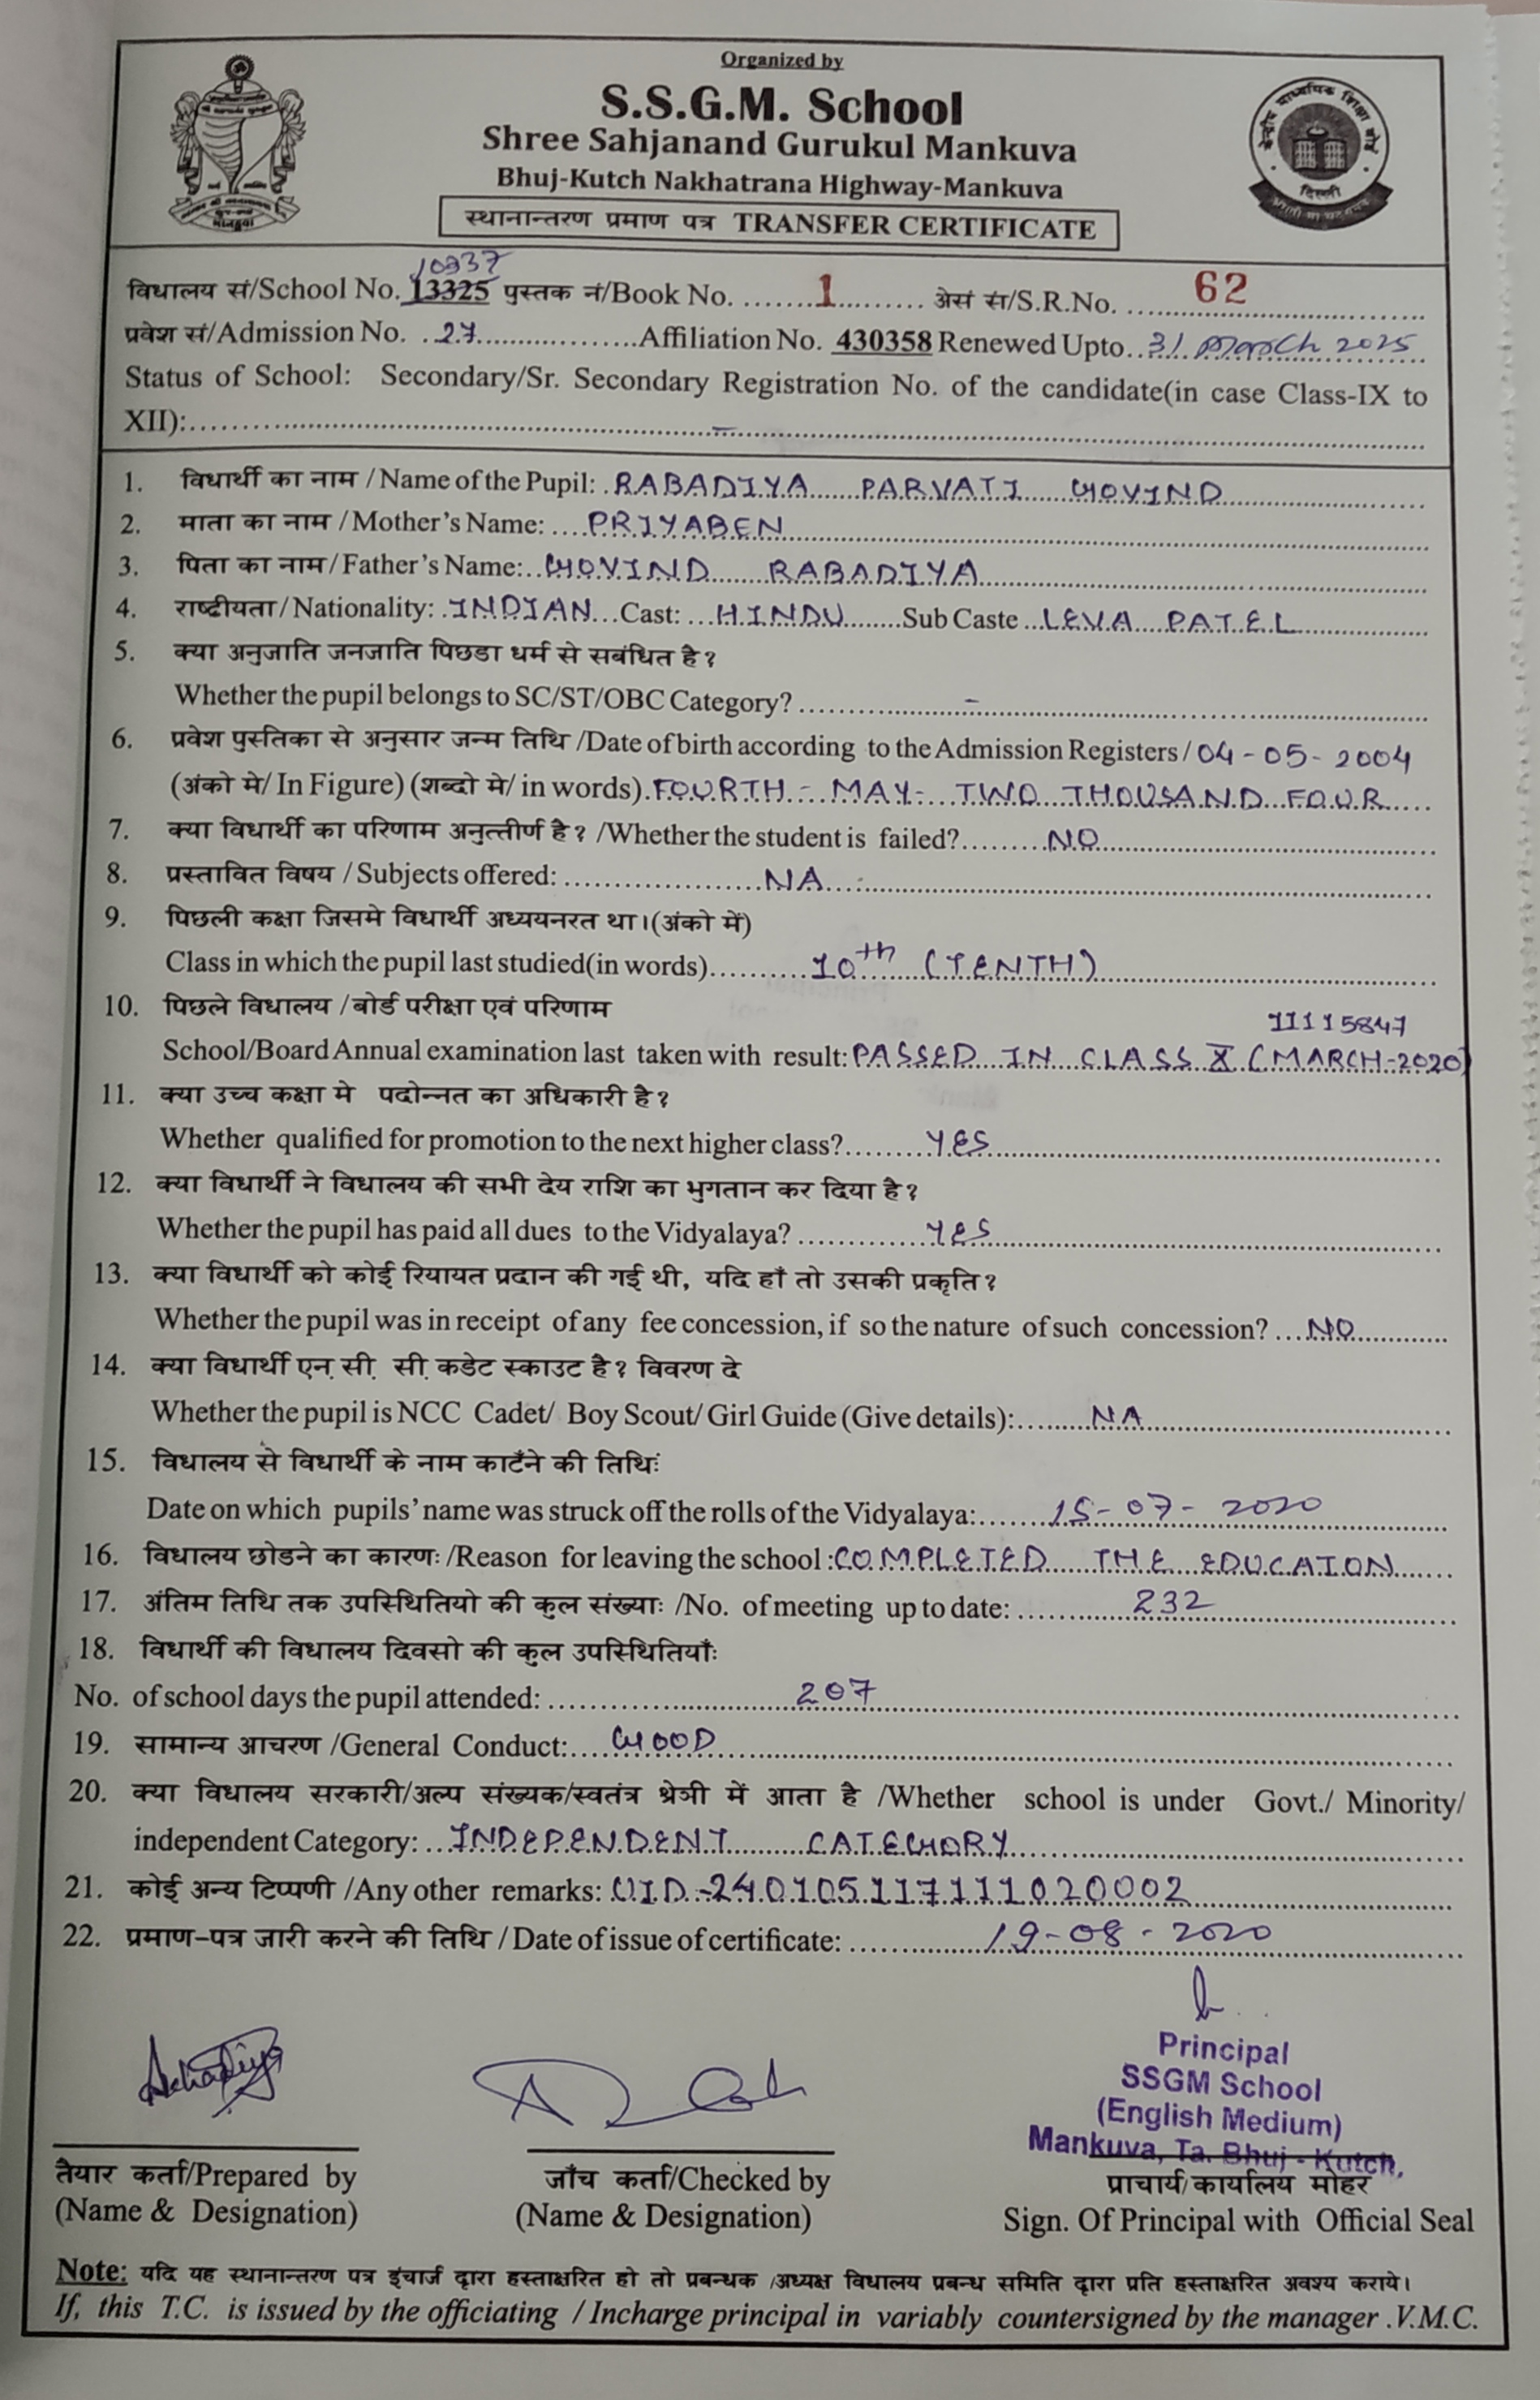 Organized by
S.S.G.M. School
Shree Sahjanand Gurukul Mankuva
Bhuj-Kutch Nakhatrana Highway-Mankuva
स्थानान्तरण प्रमाण पत्र TRANSFER CERTIFICATE
केन्द्रीय माध्यमिक शिक्षा बोर्ड
दिल्ली
मानकुवा
10337
विधालय सं/School No. 13325 पुस्तक नं/Book No. ........1.......... अेसं सं/S.R.No. 62
प्रवेश सं/Admission No. ..27..................Affiliation No. 430358 Renewed Upto..31 March 2025
Status of School: Secondary/Sr. Secondary Registration No. of the candidate(in case Class-IX to
XII):.......................–.......................
1. विधार्थी का नाम / Name of the Pupil: RABADIYA PARVATI GOVIND
2. माता का नाम / Mother's Name: ....PRIYABEN
3. पिता का नाम / Father's Name:..GOVIND RABADIYA
4. राष्टीयता / Nationality: .INDIAN...Cast: ...HINDU........Sub Caste ..LEVA PATEL
5. क्या अनुजाति जनजाति पिछडा धर्म से सबंधित है?
Whether the pupil belongs to SC/ST/OBC Category? .................–.................
6. प्रवेश पुस्तिका से अनुसार जन्म तिथि /Date of birth according to the Admission Registers / 04-05-2004
(अंको मे/ In Figure) (शब्दो मे/ in words).FOURTH - MAY- TWO THOUSAND FOUR.....
7. क्या विधार्थी का परिणाम अनुत्तीर्ण है? /Whether the student is failed?.........NO
8. प्रस्तावित विषय / Subjects offered: ....................NA
9. पिछली कक्षा जिसमे विधार्थी अध्ययनरत था।(अंको में)
Class in which the pupil last studied(in words)..........10th (TENTH)
10. पिछले विधालय /बोर्ड परीक्षा एवं परिणाम
11115847
School/Board Annual examination last taken with result: PASSED IN CLASS X (MARCH-2020)
11. क्या उच्च कक्षा मे पदोन्नत का अधिकारी है?
Whether qualified for promotion to the next higher class?.........YES
12. क्या विधार्थी ने विधालय की सभी देय राशि का भुगतान कर दिया है?
Whether the pupil has paid all dues to the Vidyalaya? .............YES
13. क्या विधार्थी को कोई रियायत प्रदान की गई थी, यदि हाँ तो उसकी प्रकृति?
Whether the pupil was in receipt of any fee concession, if so the nature of such concession? ...NO
14. क्या विधार्थी एन. सी. सी. कडेट स्काउट है? विवरण दे
Whether the pupil is NCC Cadet/ Boy Scout/ Girl Guide (Give details):........NA
15. विधालय से विधार्थी के नाम काटँने की तिथिः
Date on which pupils' name was struck off the rolls of the Vidyalaya:.......15-07-2020
16. विधालय छोडने का कारणः /Reason for leaving the school :COMPLETED THE EDUCAION
17. अंतिम तिथि तक उपस्थितियो की कुल संख्याः /No. of meeting up to date: ............232
18. विधार्थी की विधालय दिवसो की कुल उपस्थितियाँः
No. of school days the pupil attended: .........................207
19. सामान्य आचरण /General Conduct:....GOOD
20. क्या विधालय सरकारी/अल्प संख्यक/स्वतंत्र श्रेञी में आता है /Whether school is under Govt./ Minority/
independent Category: ...INDEPENDENT CATEGORY
21. कोई अन्य टिप्पणी /Any other remarks: UID-240105117111020002
22. प्रमाण-पत्र जारी करने की तिथि / Date of issue of certificate: ..............19-08-2020
Principal
SSGM School
(English Medium)
Mankuva, Ta. Bhuj - Kutch,
तैयार कर्ता/Prepared by जाँच कर्ता/Checked by प्राचार्य/कार्यालय मोहर
(Name & Designation) (Name & Designation) Sign. Of Principal with Official Seal
Note: यदि यह स्थानान्तरण पत्र इंचार्ज द्वारा हस्ताक्षरित हो तो प्रबन्धक /अध्यक्ष विधालय प्रबन्ध समिति द्वारा प्रति हस्ताक्षरित अवश्य कराये।
If, this T.C. is issued by the officiating / Incharge principal in variably countersigned by the manager .V.M.C.